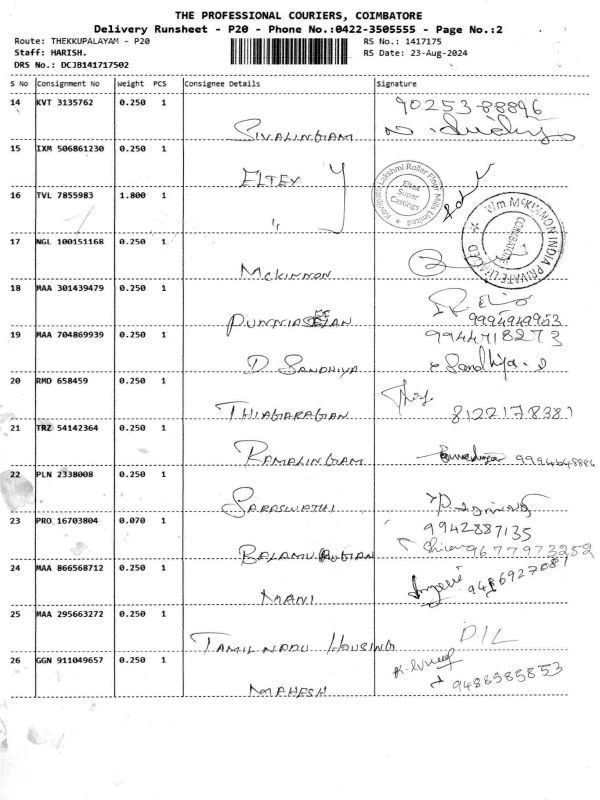 THE PROFESSIONAL COURIERS, COIMBATORE
Delivery Runsheet - P20 - Phone No.:0422-3505555 - Page No.:2
Route: THEKKUPALAYAM - P20 RS No.: 1417175
Staff: HARISH. RS Date: 23-Aug-2024
DRS No.: DCJB141717502
S No Consignment No Weight PCS Consignee Details Signature
14 KVT 3135762 0.250 1 90253 88896
SIVALINGAM
15 IXM 506861230 0.250 1
ELTEX
Kovilpatti Lakshmi Roller Flour Mills Limited
Eltex
Super
Castings
16 TVL 7855983 1.800 1
"
Wm McKINNON INDIA PRIVATE LIMITED
COIMBATORE
17 NGL 100151168 0.250 1
MCKINNON
18 MAA 301439479 0.250 1
9994949953
19 MAA 704869939 0.250 1 9944718273
D. SANDHIYA Sandhiya. D
20 RMD 658459 0.250 1
THIAGARAGAN 8122178381
21 TRZ 54142364 0.250 1
RAMALINGAM
22 PLN 2338008 0.250 1
SARASWATHI
23 PRO 16703804 0.070 1 9942887135
9677973252
24 MAA 866568712 0.250 1 9486927081
MANI
25 MAA 295663272 0.250 1 DIL
TAMIL NADU HOUSING
26 GGN 911049657 0.250 1
MAHESH 9488585853